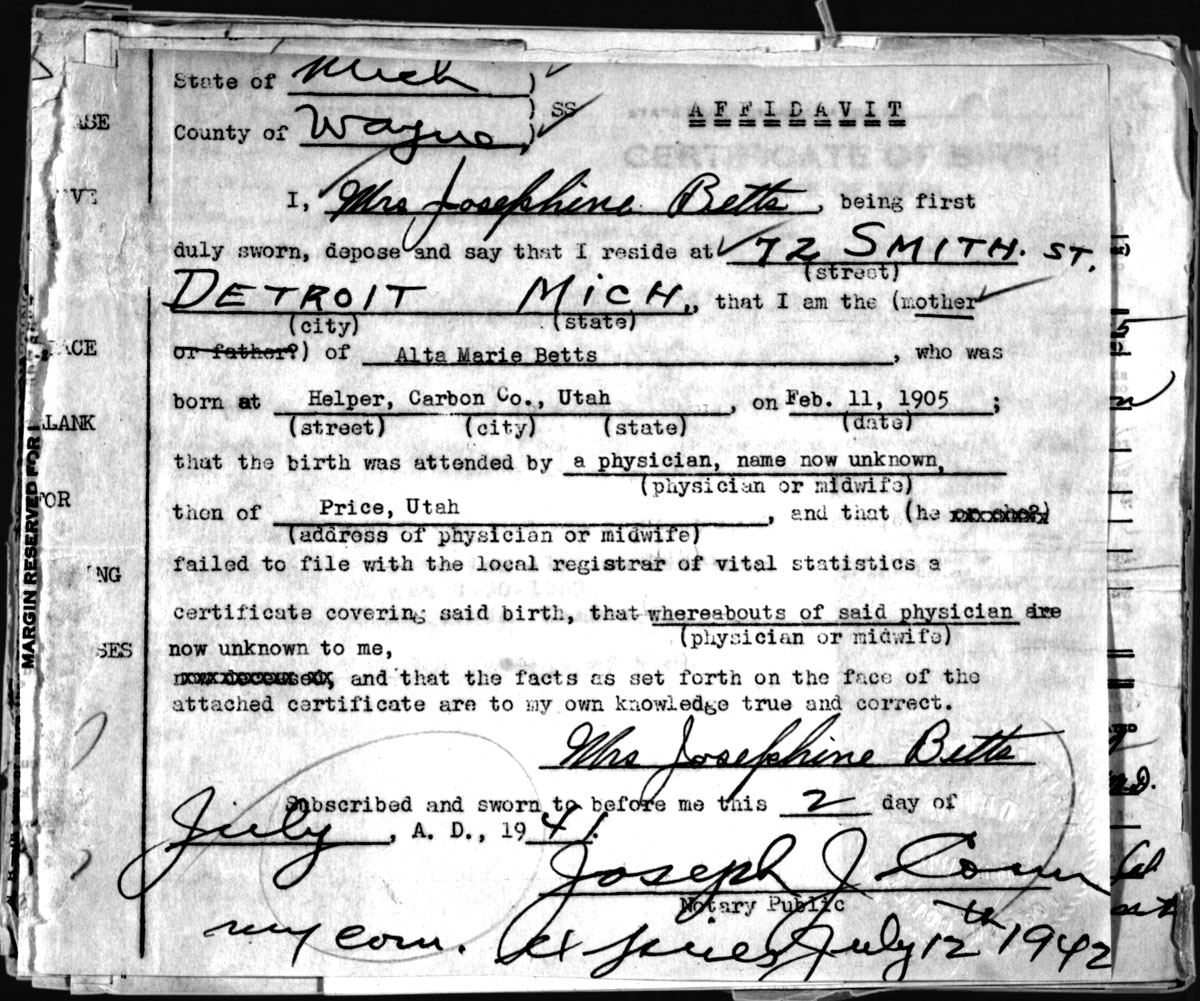 State of Mich )
) SS
County of Wayne )
AFFIDAVIT
CERTIFICATE OF BIRTH
I, Mrs Josephine Betts, being first
duly sworn, depose and say that I reside at 72 SMITH. ST.
(street)
DETROIT MICH., that I am the (mother
(city) (state)
or father?) of Alta Marie Betts, who was
born at Helper, Carbon Co., Utah, on Feb. 11, 1905;
(street) (city) (state) (date)
that the birth was attended by a physician, name now unknown,
(physician or midwife)
then of Price, Utah, and that (he
(address of physician or midwife)
failed to file with the local registrar of vital statistics a
certificate covering said birth, that whereabouts of said physician are
(physician or midwife)
now unknown to me,
and that the facts as set forth on the face of the
attached certificate are to my own knowledge true and correct.
Mrs Josephine Betts
Subscribed and sworn to before me this 2 day of
July, A. D., 1941.
Joseph J
Notary Public
my com. Expires July 12th 1942
MARGIN RESERVED FOR